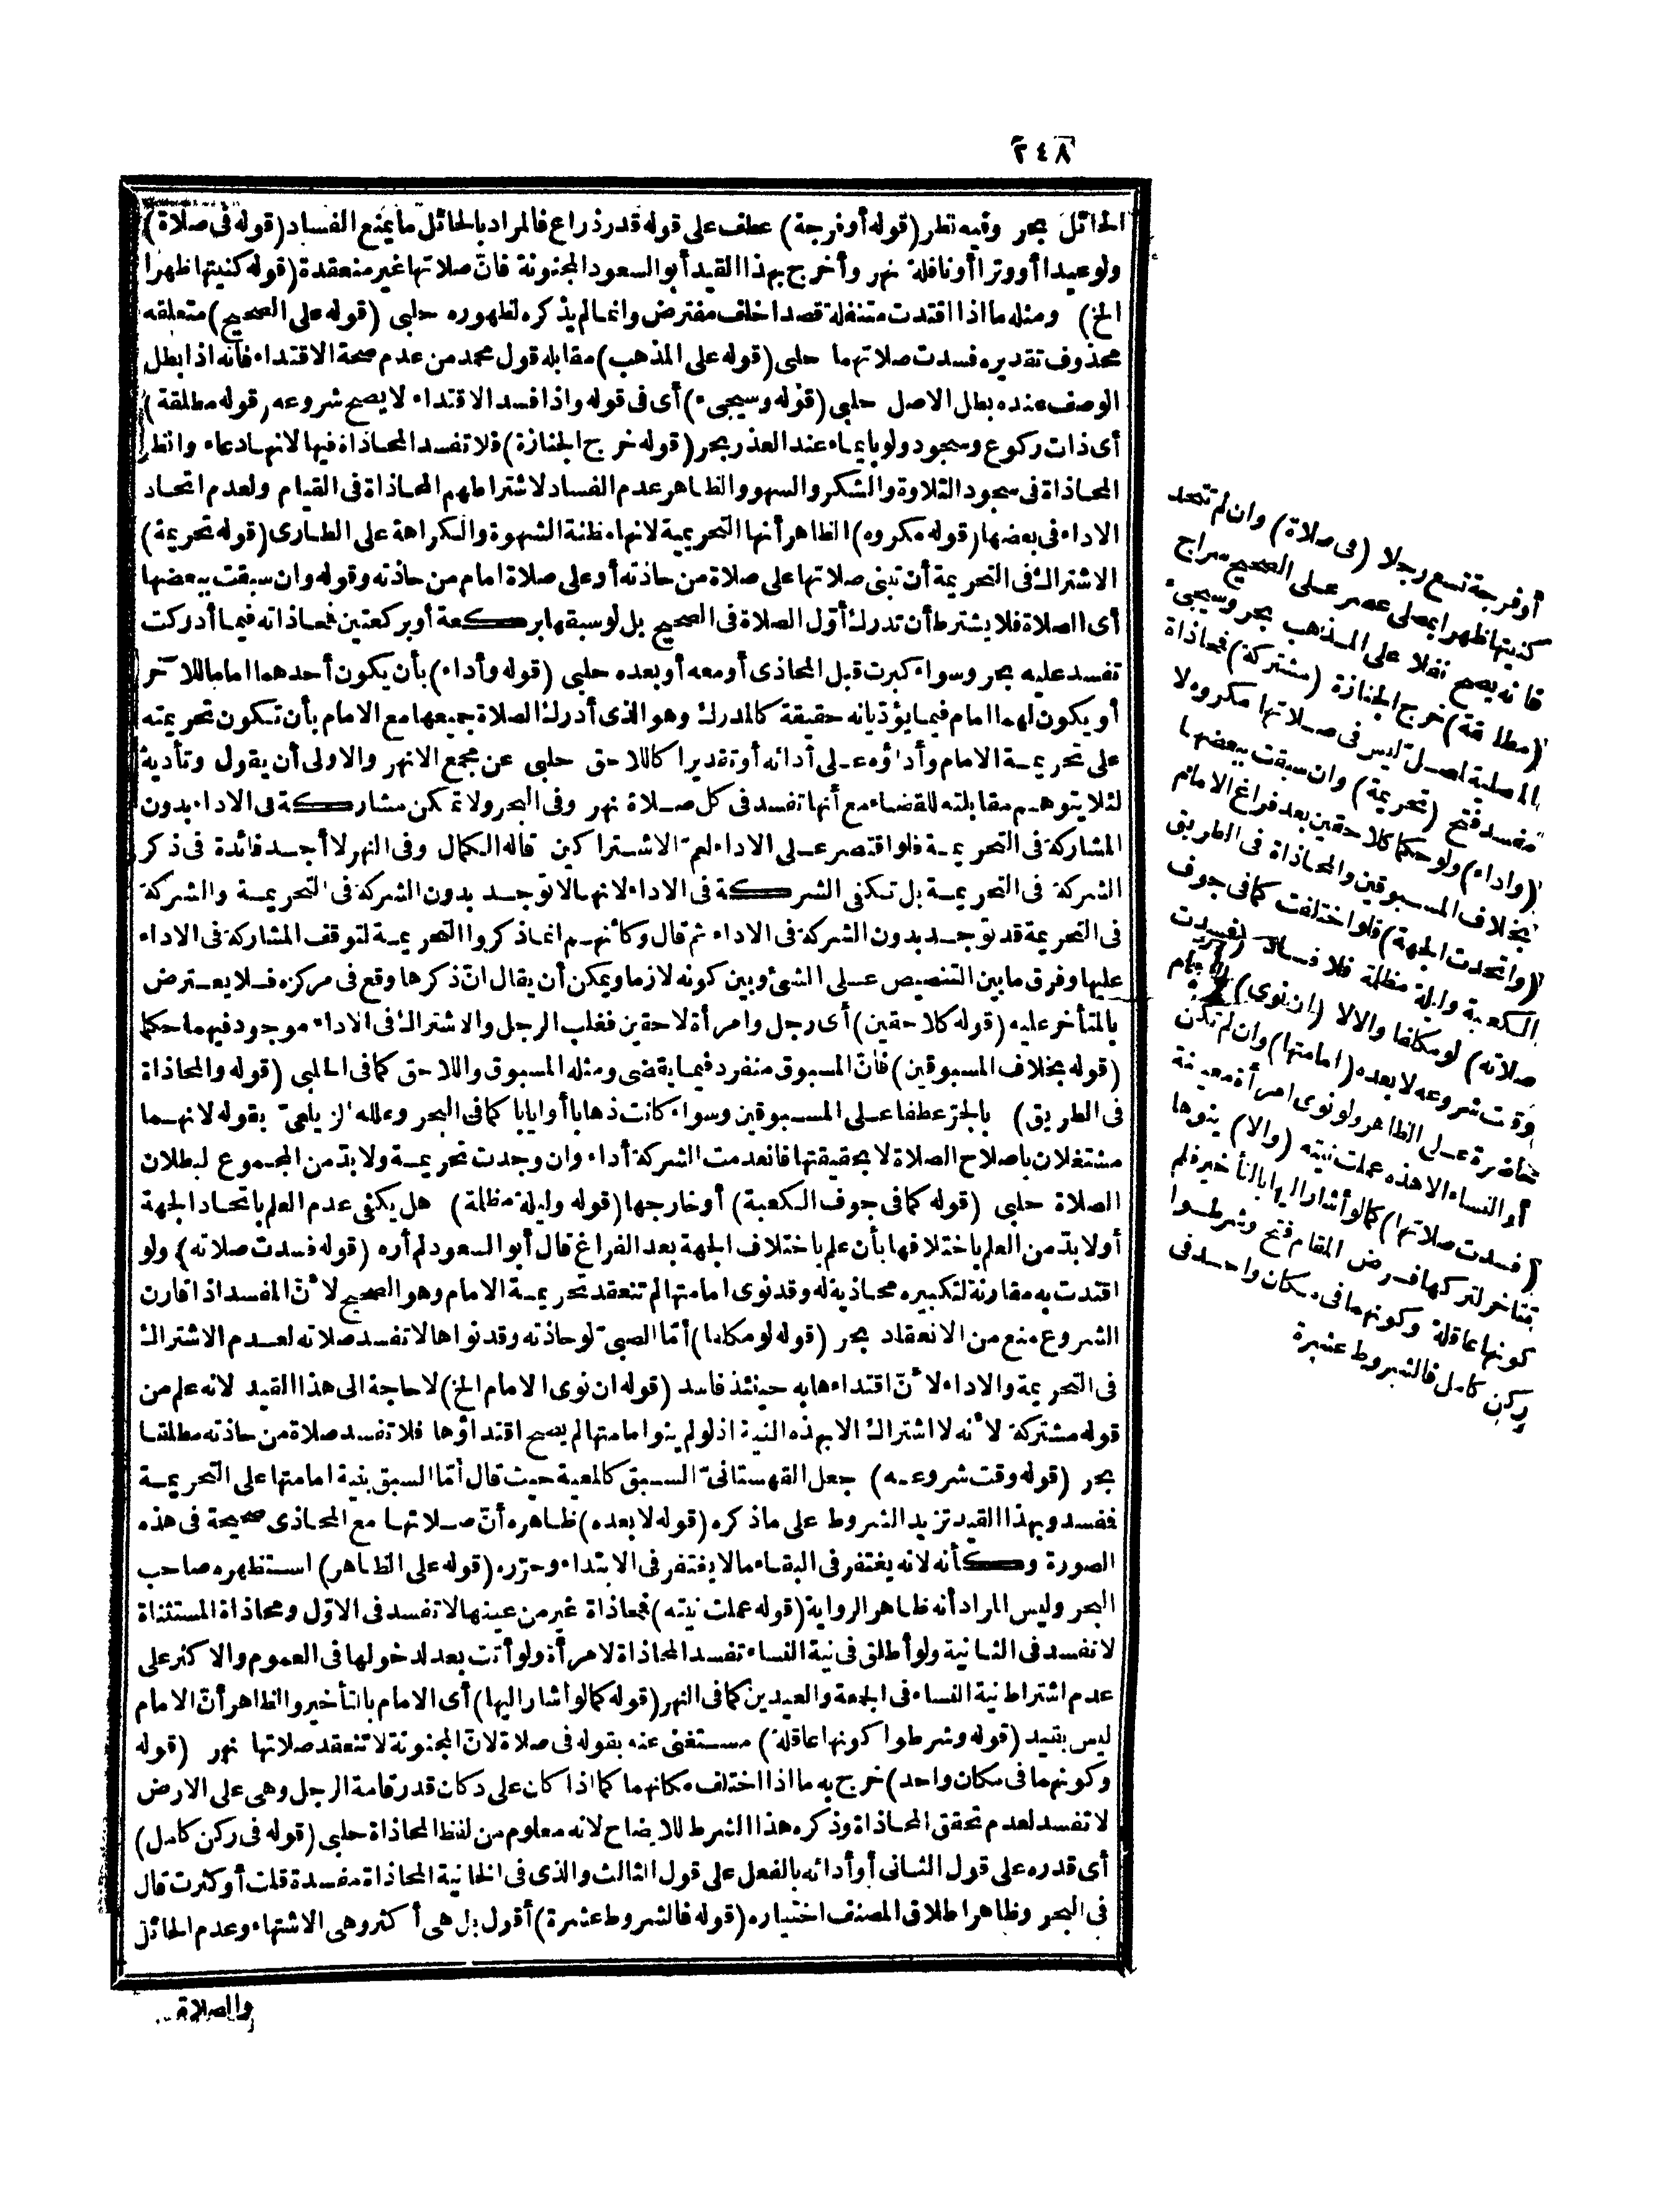 ٢٤٨
الحائل بحر وفيه نظر (قوله أو فرجة) عطف على قوله قدر ذراع فالمراد بالحائل ما يمنع الفساد (قوله فى صلاة)
ولو عيدا أو وترا أو نافلة نهر وأخرج بهذا القيد أبو السعود المجنونة فانّ صلاتها غير منعقدة (قوله كنيتها ظهرا
الخ) ومثله ما اذا اقتدت متنفلة قصدا خلف مفترض وانما لم يذكره لظهوره حلبى (قوله على الصحيح) متعلقه
محذوف تقديره فسدت صلاتهما حلبى (قوله على المذهب) مقابله قول محمد من عدم صحة الاقتداء فانه اذا بطل
الوصف عنده بطل الاصل حلبى (قوله وسيجىء) أى فى قوله واذا فسد الاقتداء لا يصح شروعه (قوله مطلقة)
أى ذات ركوع وسجود ولو بايماء عند العذر بحر (قوله خرج الجنازة) فلا تفسد المحاذاة فيها لانها دعاء وانظر
المحاذاة فى سجود التلاوة والشكر والسهو والظاهر عدم الفساد لاشتراطهم المحاذاة فى القيام ولعدم اتحاد
الاداء فى بعضها (قوله مكروه) الظاهر أنها التحريمية لانها مظنة الشهوة والكراهة على الطارى (قوله تحريمة)
الاشتراك فى التحريمة أن تبنى صلاتها على صلاة من حاذته أو على صلاة امام من حاذته وقوله وان سبقت ببعضها
أى الصلاة فلا يشترط أن تدرك أوّل الصلاة فى الصحيح بل لو سبقها بركعة أو بركعتين فحاذاته فيما أدركت
تفسد عليه بحر وسواء كبرت قبل المحاذى أو معه أو بعده حلبى (قوله وأداء) بأن يكون أحدهما اماما للآخر
أو يكون لهما امام فيما يؤدّيانه حقيقة كالمدرك وهو الذى أدرك الصلاة جميعها مع الامام بأن تكون تحريمته
على تحريمة الامام وأداؤه على أدائه أو تقديرا كاللاحق حلبى عن مجمع الانهر والاولى أن يقول وتأدية
لئلا يتوهم مقابلته للقضاء مع أنها تفسد فى كل صلاة نهر وفى البحر ولا تمكن مشاركة فى الاداء بدون
المشاركة فى التحريمة فلو اقتصر على الاداء لعمّ الاشتراكين قاله الكمال وفى النهر لا أجد فائدة فى ذكر
الشركة فى التحريمة بل تكفى الشركة فى الاداء لانها لا توجد بدون الشركة فى التحريمة والشركة
فى التحريمة قد توجد بدون الشركة فى الاداء ثم قال وكأنهم انما ذكروا التحريمة لتوقف المشاركة فى الاداء
عليها وفرق ما بين التنصيص على الشئ وبين كونه لازما ويمكن أن يقال انّ ذكرها وقع فى مركزه فلا يعترض
بالمتأخر عليه (قوله كلاحقين) أى رجل وامرأة لاحقين فغلب الرجل والاشتراك فى الاداء موجود فيهما حكما
(قوله بخلاف المسبوقين) فانّ المسبوق منفرد فيما يقضى ومثله المسبوق واللاحق كما فى الحلبى (قوله والمحاذاة
فى الطريق) بالجرّ عطفا على المسبوقين وسواء كانت ذهابا أو ايابا كما فى البحر وعلله الزيلعىّ بقوله لانهما
مشتغلان باصلاح الصلاة لا بحقيقتها فانعدمت الشركة أداء وان وجدت تحريمة ولا بدّ من المجموع لبطلان
الصلاة حلبى (قوله كما فى جوف الكعبة) أو خارجها (قوله وليلة مظلمة) هل يكفى عدم العلم باتحاد الجهة
أو لا بدّ من العلم باختلافها بأن علم باختلاف الجهة بعد الفراغ قال أبو السعود لم أره (قوله فسدت صلاته) ولو
اقتدت به مقارنة لتكبيره محاذية له وقد نوى امامتها لم تنعقد تحريمة الامام وهو الصحيح لأنّ المفسد اذا قارن
الشروع منع من الانعقاد بحر (قوله لو مكلفا) أمّا الصبىّ لو حاذته وقد نواها لا تفسد صلاته لعدم الاشتراك
فى التحريمة والاداء لأنّ اقتداءها به حينئذ فاسد (قوله ان نوى الامام الخ) لا حاجة الى هذا القيد لانه علم من
قوله مشتركة لأنه لا اشتراك الا بهذه النية اذ لو لم ينو امامتها لم يصح اقتداؤها فلا تفسد صلاة من حاذته مطلقا
بحر (قوله وقت شروعه) جعل القهستانىّ السبق كالمعية حيث قال أمّا السبق بنية امامتها على التحريمة
ففسد وبهذا القيد تزيد الشروط على ما ذكره (قوله لا بعده) ظاهره أنّ صلاتها مع المحاذى صحيحة فى هذه
الصورة وكأنه لانه يغتفر فى البقاء ما لا يغتفر فى الابتداء وحرّره (قوله على الظاهر) استظهره صاحب
البحر وليس المراد أنه ظاهر الرواية (قوله عملت نيته) فمحاذاة غير من عينها لا تفسد فى الاوّل ومحاذاة المستثناة
لا تفسد فى الثانية ولو أطلق فى نية النساء تفسد المحاذاة لامرأة ولو أتت بعد لدخولها فى العموم والاكثر على
عدم اشتراط نية النساء فى الجمعة والعيدين كما فى النهر (قوله كما لو اشار اليها) أى الامام بالتأخير والظاهر أنّ الامام
ليس بقيد (قوله وشرطوا كونها عاقلة) مستغنى عنه بقوله فى صلاة لانّ المجنونة لا تنعقد صلاتها نهر (قوله
وكونهما فى مكان واحد) خرج به ما اذا اختلف مكانهما كما اذا كان على دكان قدر قامة الرجل وهى على الارض
لا تفسد لعدم تحقق المحاذاة وذكره هذا الشرط للايضاح لانه معلوم من لفظ المحاذاة حلبى (قوله فى ركن كامل)
أى قدره على قول الثانى أو أدائه بالفعل على قول الثالث والذى فى الخانية المحاذاة مفسدة قلت أو كثرت قال
فى البحر وظاهر اطلاق المصنف اختياره (قوله فالشروط عشرة) أقول بل هى أكثر وهى الاشتهاء وعدم الحائل
والصلاة
أو فرجة تسع رجلا (فى صلاة) وان لم تتحد
كنيتها ظهرا بمصلى عصر على الصحيح سراج
فانه يصح نفلا على المذهب بحر وسيجىء
(مطلقة) خرج الجنازة (مشتركة) فمحاذاة
المصلية لمصلّ ليس فى صلاتها مكروه لا
مفسد فتح (تحريمة) وان سبقت ببعضها
(واداء) ولو حكما كلاحقين بعد فراغ الامام
بخلاف المسبوقين والمحاذاة فى الطريق
(واتحدت الجهة) فلو اختلفت كما فى جوف
الكعبة وليلة مظلمة فلا فساد (فسدت
صلاته) لو مكلفا والا لا (ان نوى) الامام
وقت شروعه لا بعده (امامتها) وان لم تكن
حاضرة على الظاهر ولو نوى امرأة معينة
أو النساء الا هذه عملت نيته (والا) ينوها
(فسدت صلاتها) كما لو أشار اليها بالتأخير فلم
تتأخر لتركها فرض المقام فتح وشرطوا
كونها عاقلة وكونهما فى مكان واحد فى
ركن كامل فالشروط عشرة